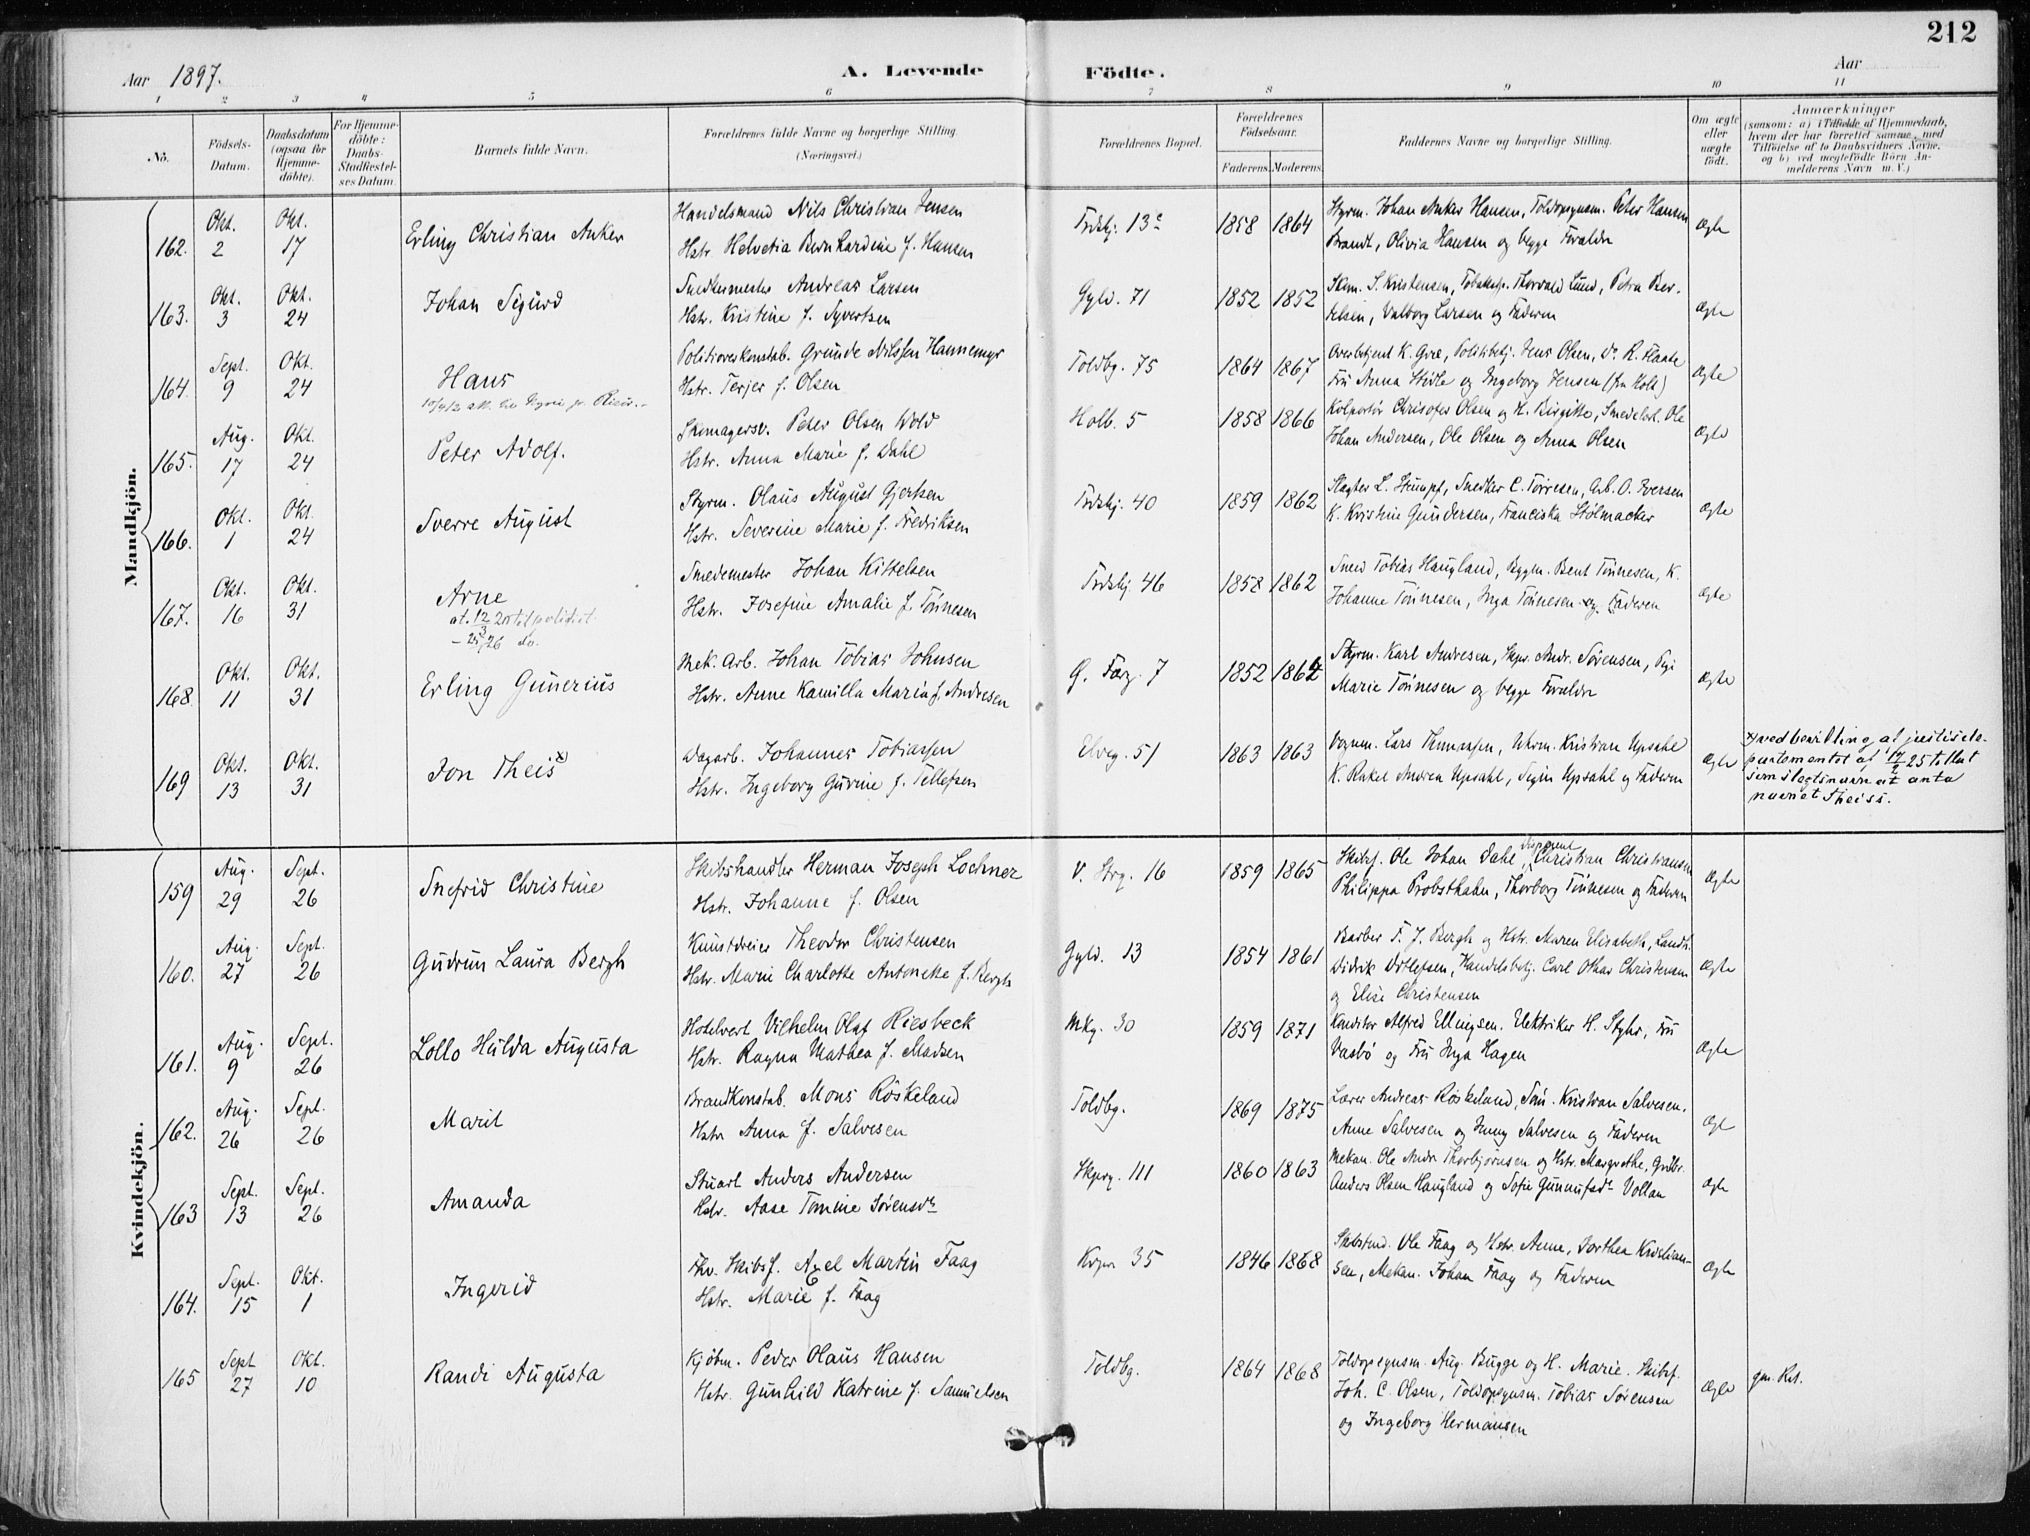 212
Aar 1897.
A. Levende Födte.
Aar
1 2 3 4 5 6 7 8 9 10 11
No.
Födsels-Datum.
Daabsdatum (ogsaa for Hjemme-döbte).
For Hjemme-döbte: Daabs-Stadfæstel-ses Datum.
Barnets fulde Navn.
Forældrenes fulde Navne og borgerlige Stilling.
(Næringsvei.)
Forældrenes Bopæl.
Forældrenes Födselsaar.
Faderens. Moderens.
Faddernes Navne og borgerlige Stilling.
Om ægte eller uægte födt.
Anmærkninger
(saasom: a) i Tilfælde af Hjemmedaab,
hvem der har forrettet samme, med
Tilföielse af to Daabsvidners Navne.
og b) ved uægtefödte Börn An-
melderens Navn m. V.)
Mandkjön.
162. Okt. 2 Okt. 17 Erling Christian Anker
Handelsmand Nils Christian Jensen
Hstr. Helvetia Bernhardine f. Hansen
Frdskj. 13c 1858 1864
Styrm. Johan Anker Hansen, Toldopsynsm. Peter Hansen
Brandt, Olivia Hansen og begge Forældre
Ægte
163. Okt. 3 Okt. 24 Johan Sigurd
Snedkermester Andreas Larsen
Hstr. Kristine f. Syvertsen
Gyld. 71 1852 1852
Skom. S. Kristensen, Tobakssp. Thorvald Lund, Petra Ber-
telsen, Valborg Larsen og Faderen
Ægte
164. Sept. 9 Okt. 24 Hans
Politioverkonstab. Grunde Nilssen Hannemyr
Hstr. Terjer f. Olsen
Toldbg. 75 1864 1867
Overbetjent K. Gree, Politibetj. Jens Olsen, do R. Flaate
Fru Anna Stidle og Ingeborg Jensen (fra Holt)
Ægte
165. Aug. 17 Okt. 24 Peter Adolf.
Skomagersv. Peter Olsen Wold
Hstr. Anna Marie f. Dahl
Holb. 5 1858 1866
Kolportör Chrisofer Olsen og H. Birgitte, Smedelærl. Ole
Johan Andersen, Ole Olsen og Anna Olsen
Ægte
166. Okt. 1 Okt. 24 Sverre August
Styrm. Olaus August Gjertsen
Hstr. Severine Marie f. Fredriksen
Frdskj. 40 1859 1862
Slagter L. Stumpf, Snedker C. Torresen, Arb. O. Iversen
K. Kristine Gundersen, Franciska Stölmacker
Ægte
167. Okt. 16 Okt. 31 Arne
Smedemester Johan Kittelsen
Hstr. Josefine Amalie f. Tönnesen
Frdskj. 46 1858 1862
Smed Tobias Haugland, Bygm. Bent Tönnesen, K.
Johanne Tönnesen, Inga Tönnesen og Faderen
Ægte
168 Okt. 11 Okt. 31 Erling Gunerius
Mek. Arb. Johan Tobias Johnsen
Hstr. Anne Kamilla Maria f. Andresen
G. Færg. 7 1852 1864
Styrm. Karl Andresen, Skpr. Andr. Sörensen, Pigi
Marie Tönnesen og begge Forældre
Ægte
169 Okt. 13 Okt. 31 Jon Theis x)
Dagarb. Johannes Tobiassen
Hstr. Ingeborg Gurine f. Tellefsen
Elveg. 51 1863 1863
Vognm. Lars Thomassen, Uhrm. Kristian Upsahl
K. Rakel Andrea Upsahl, Sigrin Upsahl og Faderen
Ægte
x) ved bevilling af justisde-
partementet af 17/2 25 tillat
som slegtsnavn at anta
navnet Theiss.
Kvindekjön.
159 Aug. 29 Sept. 26 Snefrid Christine
Skibshandler Herman Joseph Lochner
Hstr. Johanne f. Olsen
V. Strg. 16 1859 1865
Skibsf. Ole Johan Dahl, Disponent Christian Christiansen
Philippa Probsthahn, Thorborg Tönnesen og Faderen
Ægte
160. Aug. 27 Sept. 26 Gudrun Laura Bergh
Kunstdreier Theodor Christensen
Hstr. Marie Charlotte Antonette f. Bergh
Gyld. 13 1854 1861
Barber F. J. Bergh og Hstr. Maren Elisabeth, Landh.
Didrik Ditlefsen, Handelsbetj. Carl Othar Christensen
og Elise Christensen
Ægte
161. Aug. 9 Sept. 26 Lollo Hulda Augusta
Hotelvert Vilhelm Olaf Riesbeck
Hstr. Ragna Mathea f. Madsen
Mkg. 30 1859 1871
Konditor Alfred Ellingsen. Elektriker H. Styhr, Fru
Vasbö og Fru Inga Hagen
Ægte
162. Aug. 26 Sept. 26 Marit
Brandkonstab. Mons Röskeland
Hstr Anna f. Salvesen
Toldbg. 1869 1875
Lærer Andreas Röskeland, Töm. Kristian Salvesen.
Anne Salvesen og Jenny Salvesen og Faderen
Ægte
163 Sept. 13 Sept. 26 Amanda
Stuart Anders Andersen
Hstr. Aase Tomine Sörensdr
Skperg. 111 1860 1863
Mekan. Ole Andr. Thorbjörnsen og Hstr. Margrethe, Grdbr.
Anders Olsen Haugland og Sofie Gunnufsdr Vollan
Ægte
164. Sept. 15 Okt. 1 Ingerid
Fhv. Skibsf. Axel Martin Faag
Hstr. Marie f. Faag
Krpr. 35 1846 1868
Skibstmd. Ole Faag og Hstr. Anne, Dorthea Kristian-
sen, Mekan. Johan Faag og Faderen
Ægte
165 Sept 27 Okt. 10 Randi Augusta
Kjöbm. Peder Olaus Hansen
Hstr. Gunhild Katrine f. Samuelsen
Toldbg. 1864 1868
Toldopsynsm. Aug. Bugge og H. Marie. Skibsf.
Joh. C. Olsen, Toldopsynsm. Tobias Sörensen
og Ingeborg Hermansen
Ægte